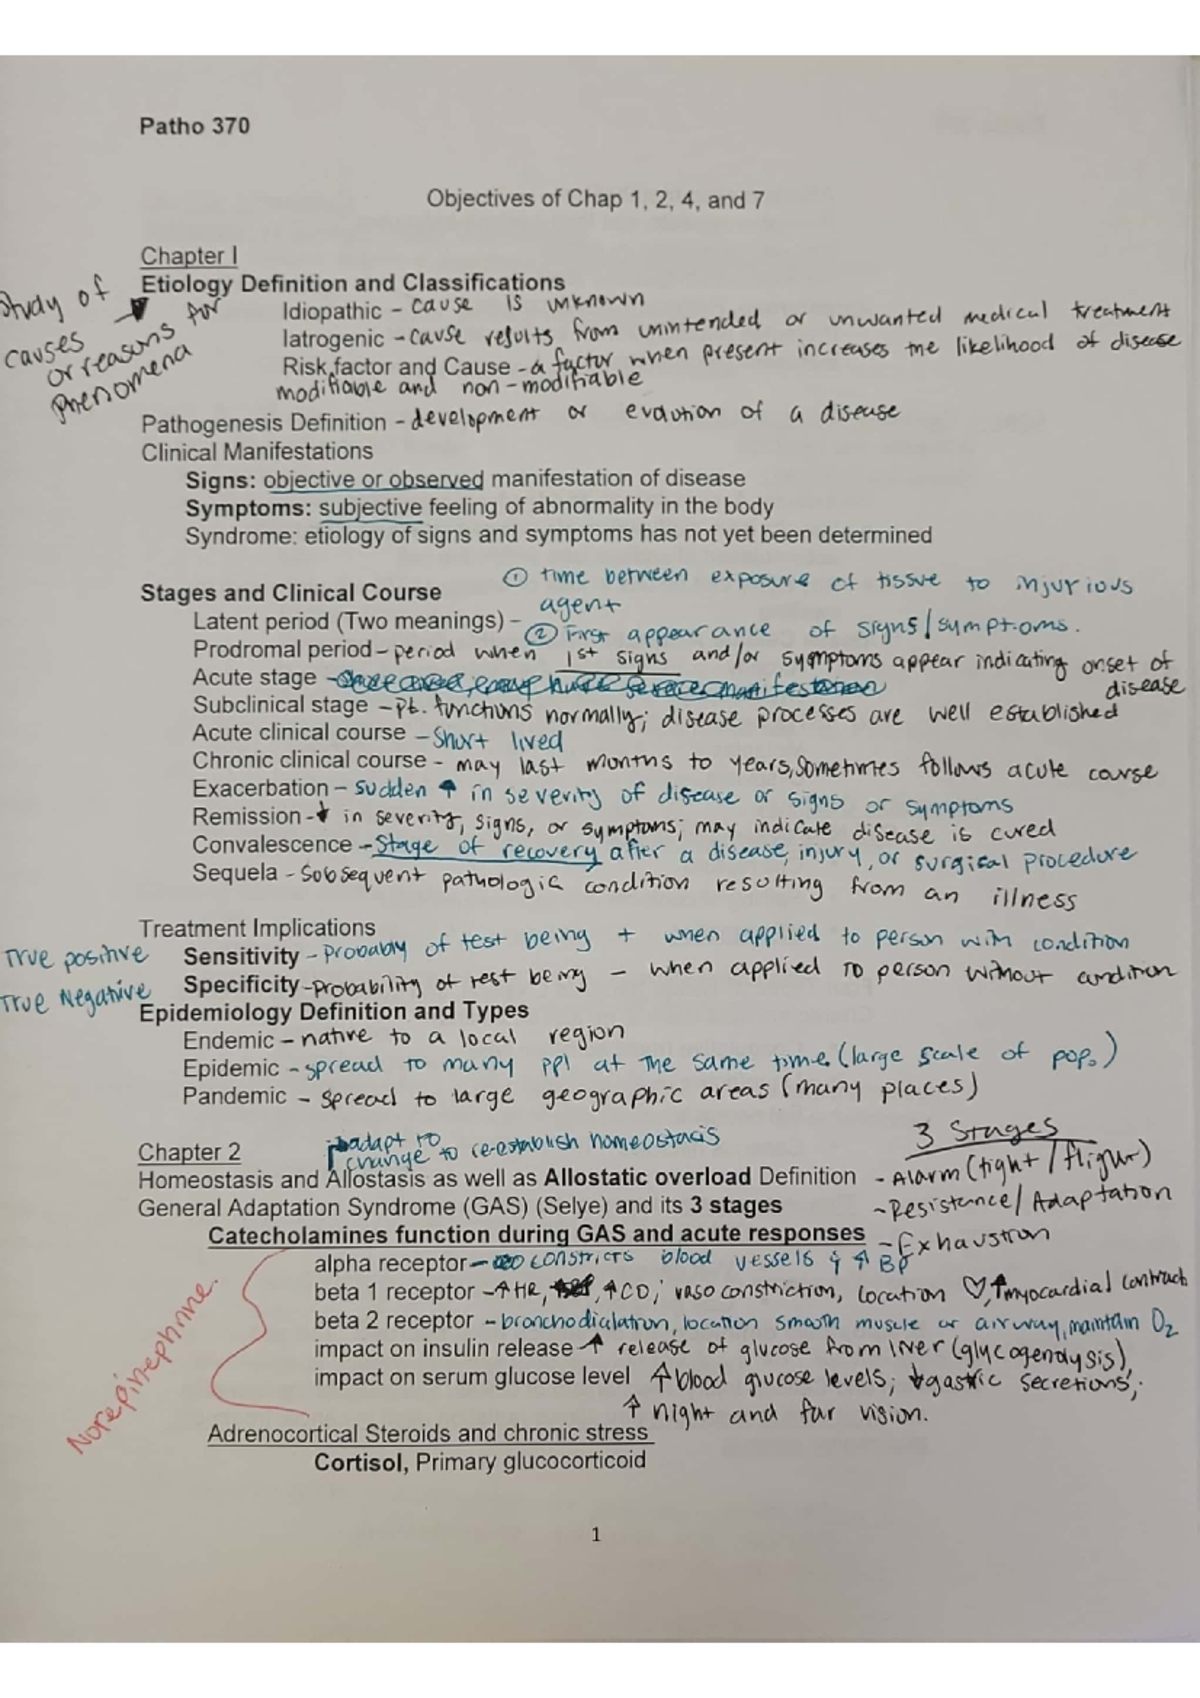 Patho 370
Objectives of Chap 1, 2, 4, and 7
Chapter I
Etiology Definition and Classifications
Study of causes or reasons for phenomena
Idiopathic - cause is unknown
Iatrogenic - cause results from unintended or unwanted medical treatment
Risk factor and Cause - a factor when present increases the likelihood of disease
modifiable and non-modifiable
Pathogenesis Definition - development or evolution of a disease
Clinical Manifestations
Signs: objective or observed manifestation of disease
Symptoms: subjective feeling of abnormality in the body
Syndrome: etiology of signs and symptoms has not yet been determined
Stages and Clinical Course
① time between exposure of tissue to injurious
agent
Latent period (Two meanings) - ② First appearance of signs/symptoms.
Prodromal period - period when 1st signs and/or symptoms appear indicating onset of
disease
Acute stage -
Subclinical stage - pt. functions normally; disease processes are well established
Acute clinical course - Short lived
Chronic clinical course - may last months to years, sometimes follows acute course
Exacerbation - sudden ↑ in severity of disease or signs or symptoms
Remission - ↓ in severity, signs, or symptoms; may indicate disease is cured
Convalescence - Stage of recovery after a disease, injury, or surgical procedure
Sequela - Subsequent pathologic condition resulting from an illness
Treatment Implications
True positive Sensitivity - Probabiy of test being + when applied to person with condition
True Negative Specificity - probability of test being - when applied to person without condition
Epidemiology Definition and Types
Endemic - native to a local region
Epidemic - spread to many ppl at the same time (large scale of pop.)
Pandemic - spread to large geographic areas (many places)
Chapter 2
adapt to
change to re-establish homeostasis
3 Stages
Homeostasis and Allostasis as well as Allostatic overload Definition - Alarm (fight/flight)
General Adaptation Syndrome (GAS) (Selye) and its 3 stages - Resistance/Adaptation
Catecholamines function during GAS and acute responses - Exhaustion
Norepinephrine.
alpha receptor - constricts blood vessels & ↑ BP
beta 1 receptor - ↑HR, ↑CO; vasoconstriction, location ♡, ↑myocardial contract
beta 2 receptor - bronchodialation, location smooth muscle or airway, maintain O2
impact on insulin release ↑ release of glucose from liver (glycogenolysis)
impact on serum glucose level ↑ blood glucose levels; ↓gastric secretions;
↑ night and far vision.
Adrenocortical Steroids and chronic stress
Cortisol, Primary glucocorticoid
1